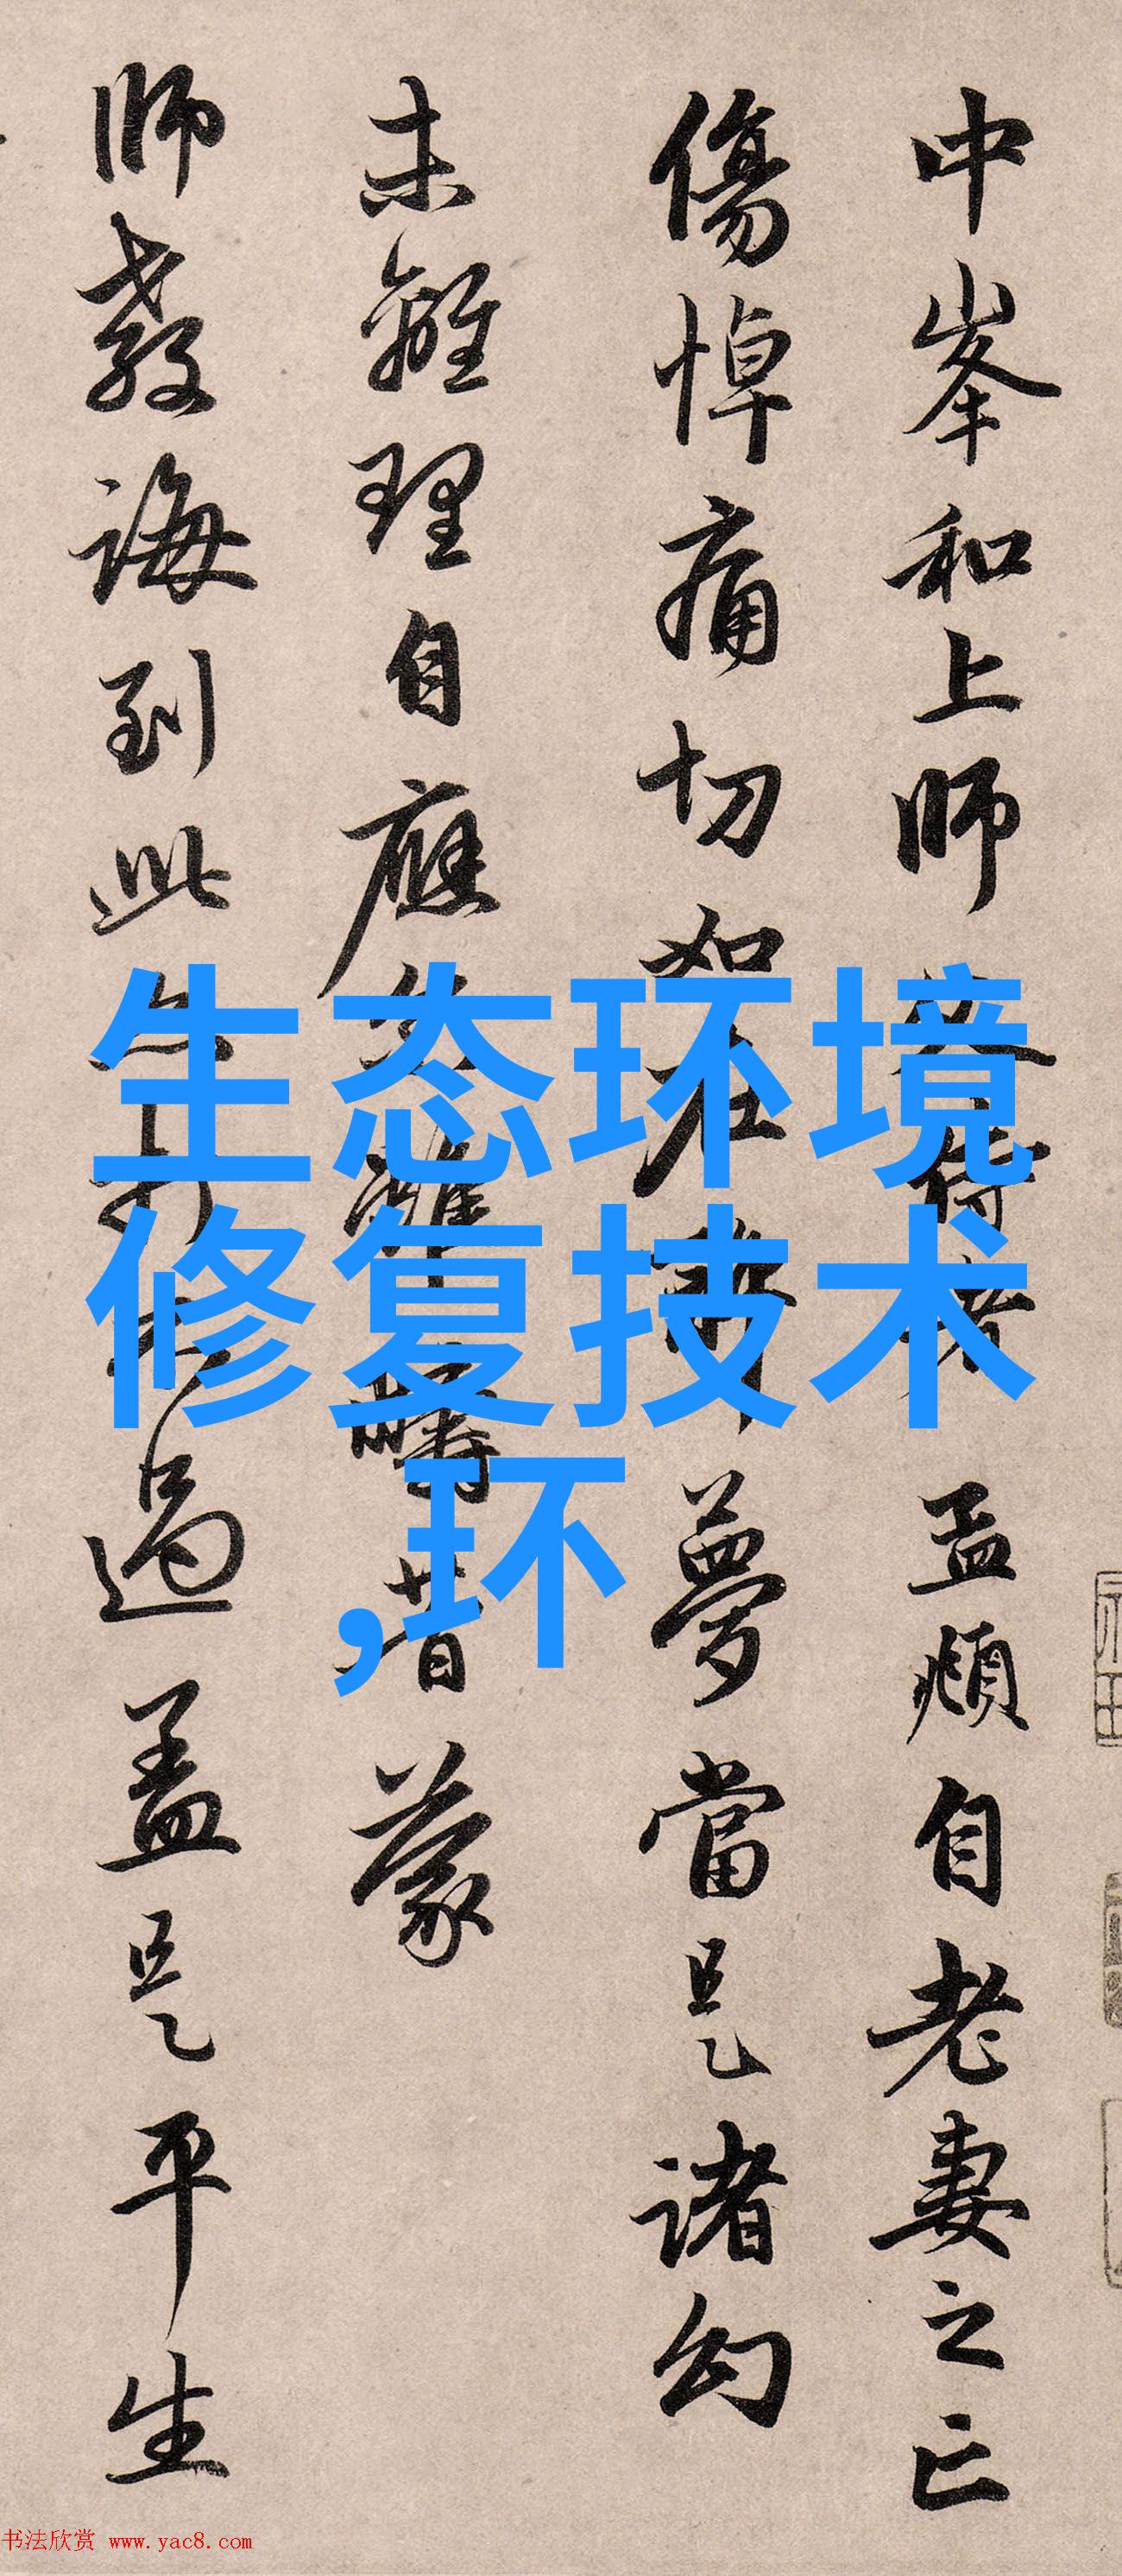 中峯和上師
侍者
孟頫自老妻之亡
傷悼痛切如在
夢當是諸幻
未離理自應
昔蒙
師教誨到此
過盖是平生
生态环境
修复技术
,环
书法欣赏 www.yac8.com